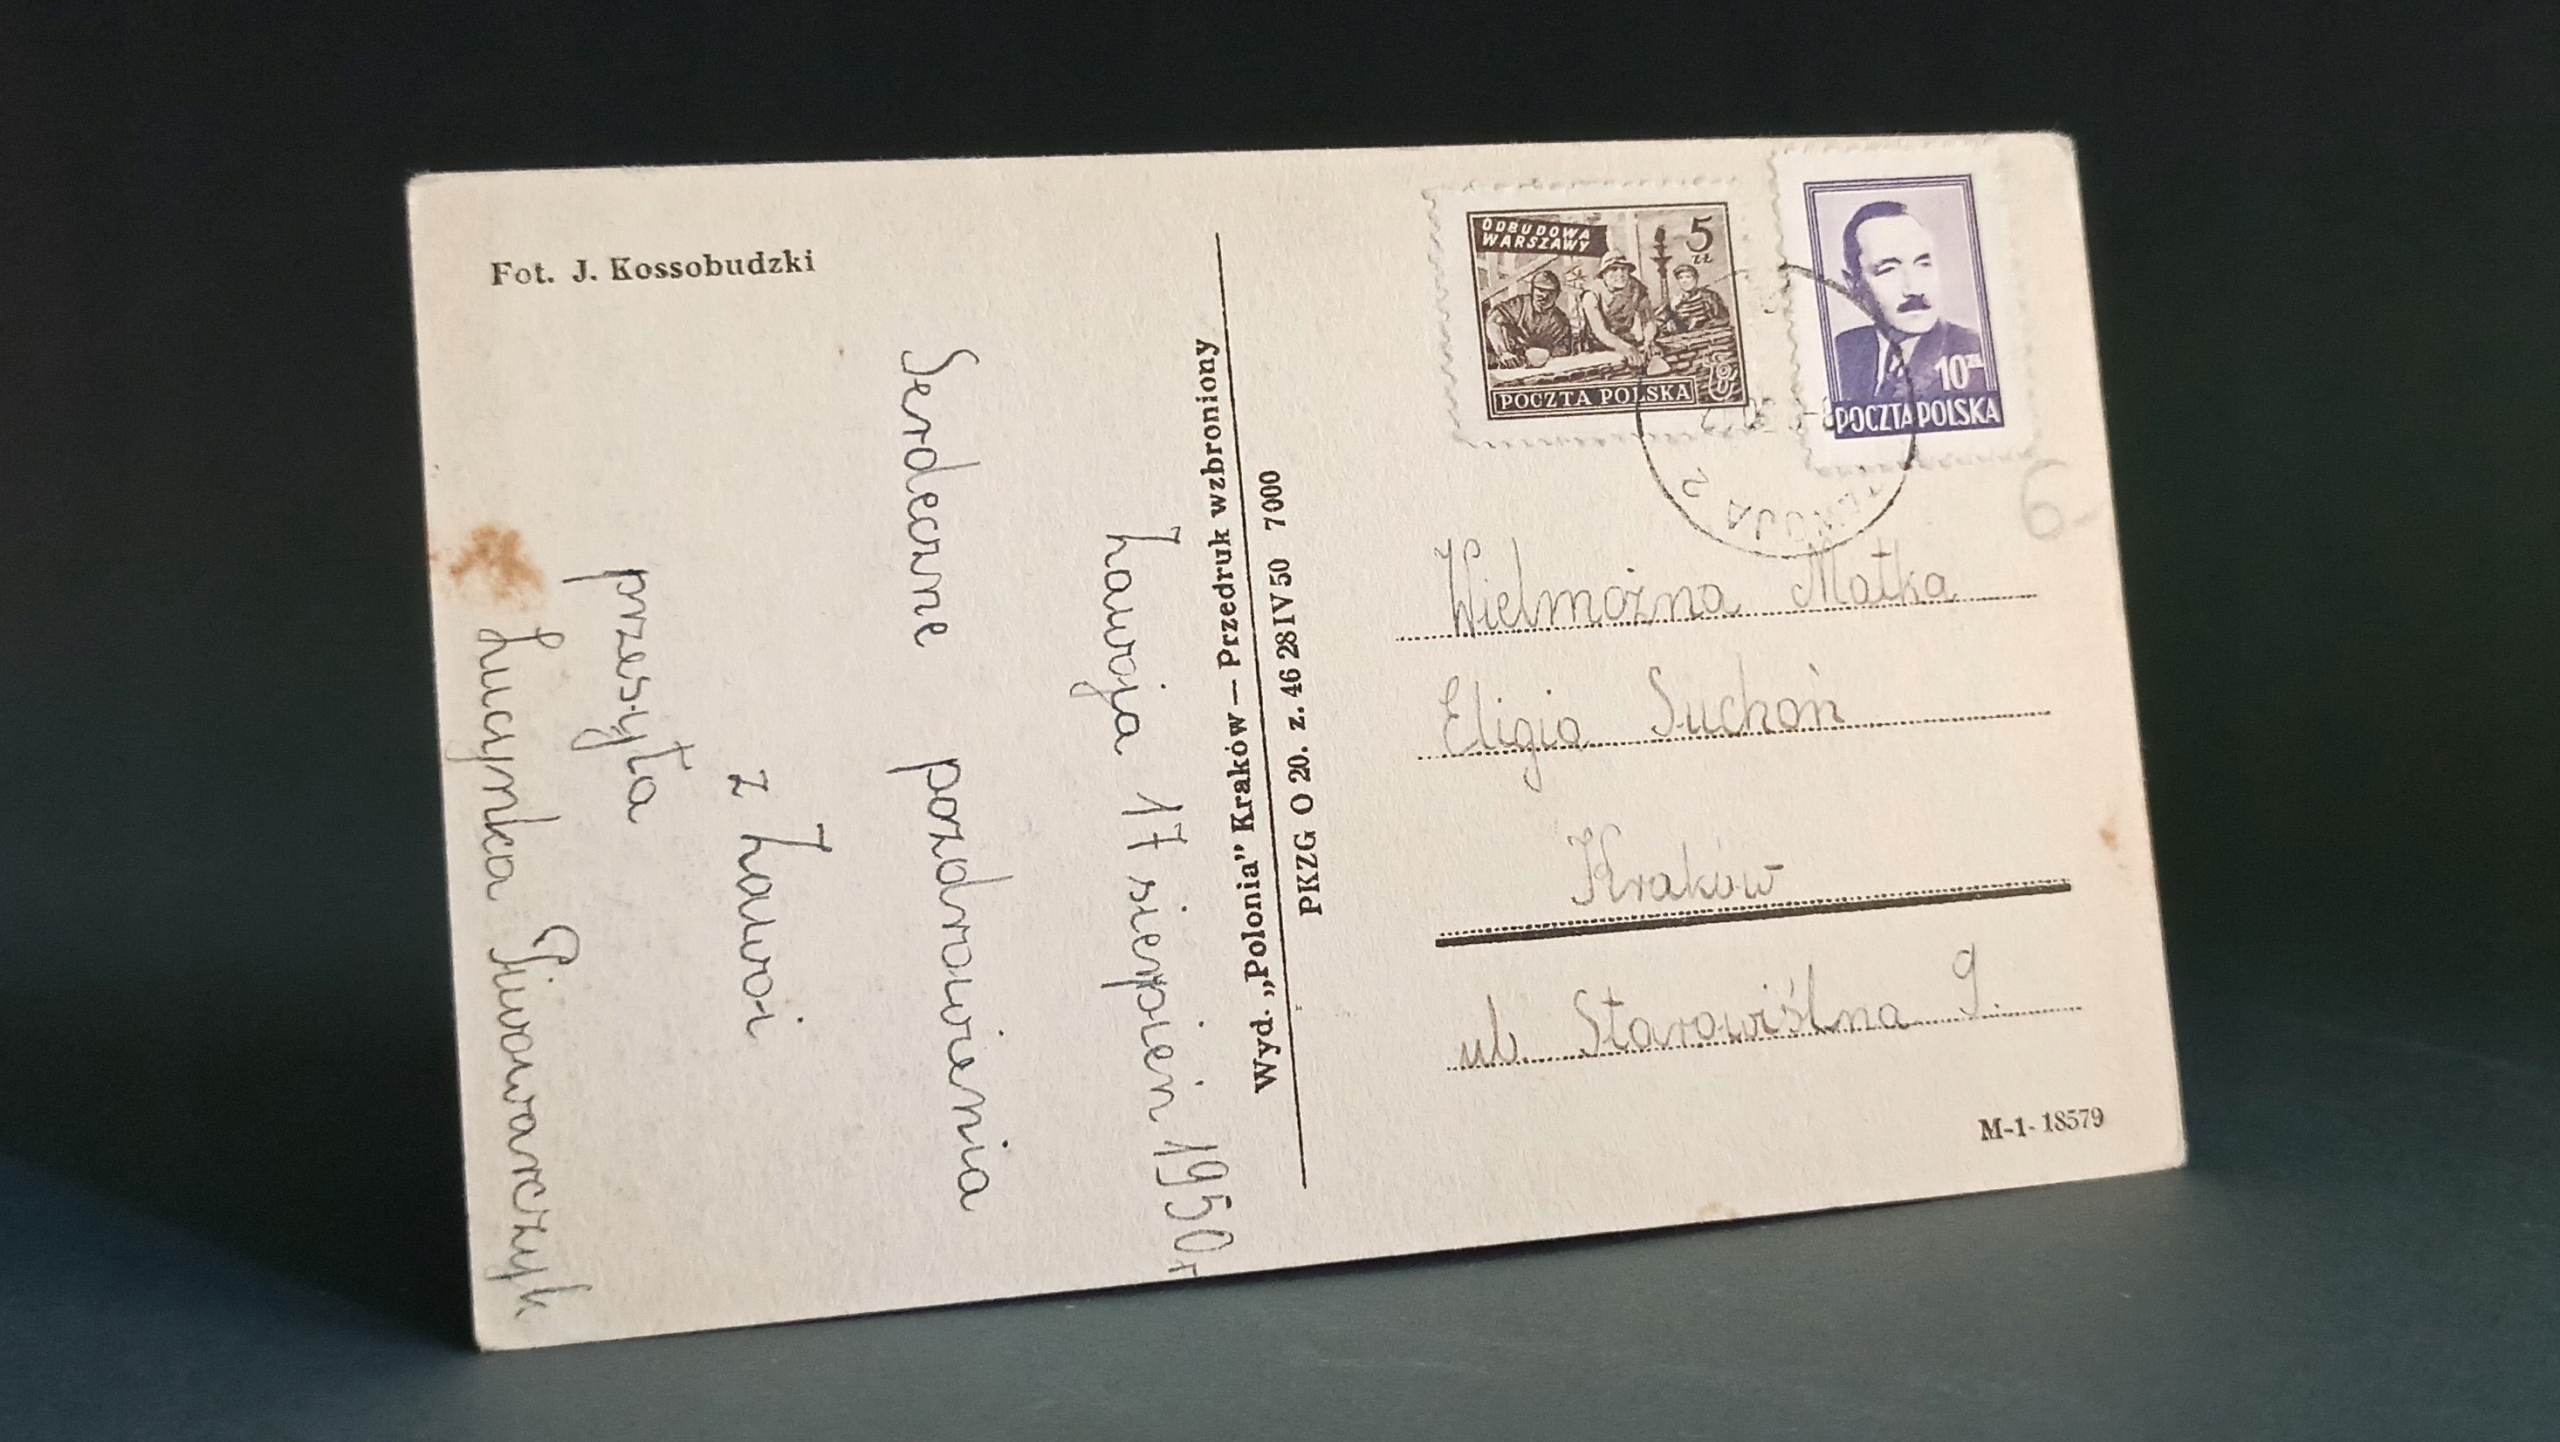 Fot. J. Kossobudzki
Zawoja 17 sierpień 1950 r
Serdeczne pozdrowienia
z Zawoi
przesyła
Lucynka Piwowarczyk
Wyd. „Polonia” Kraków — Przedruk wzbroniony
PKZG O 20. z. 46 28 IV 50 7000
ODBUDOWA
WARSZAWY
5
ZŁ
POCZTA POLSKA
10 ZŁ
POCZTA POLSKA
6
Wielmożna Matka
Eligia Suchoń
Kraków
ul. Starowiślna 9.
M-1-18579